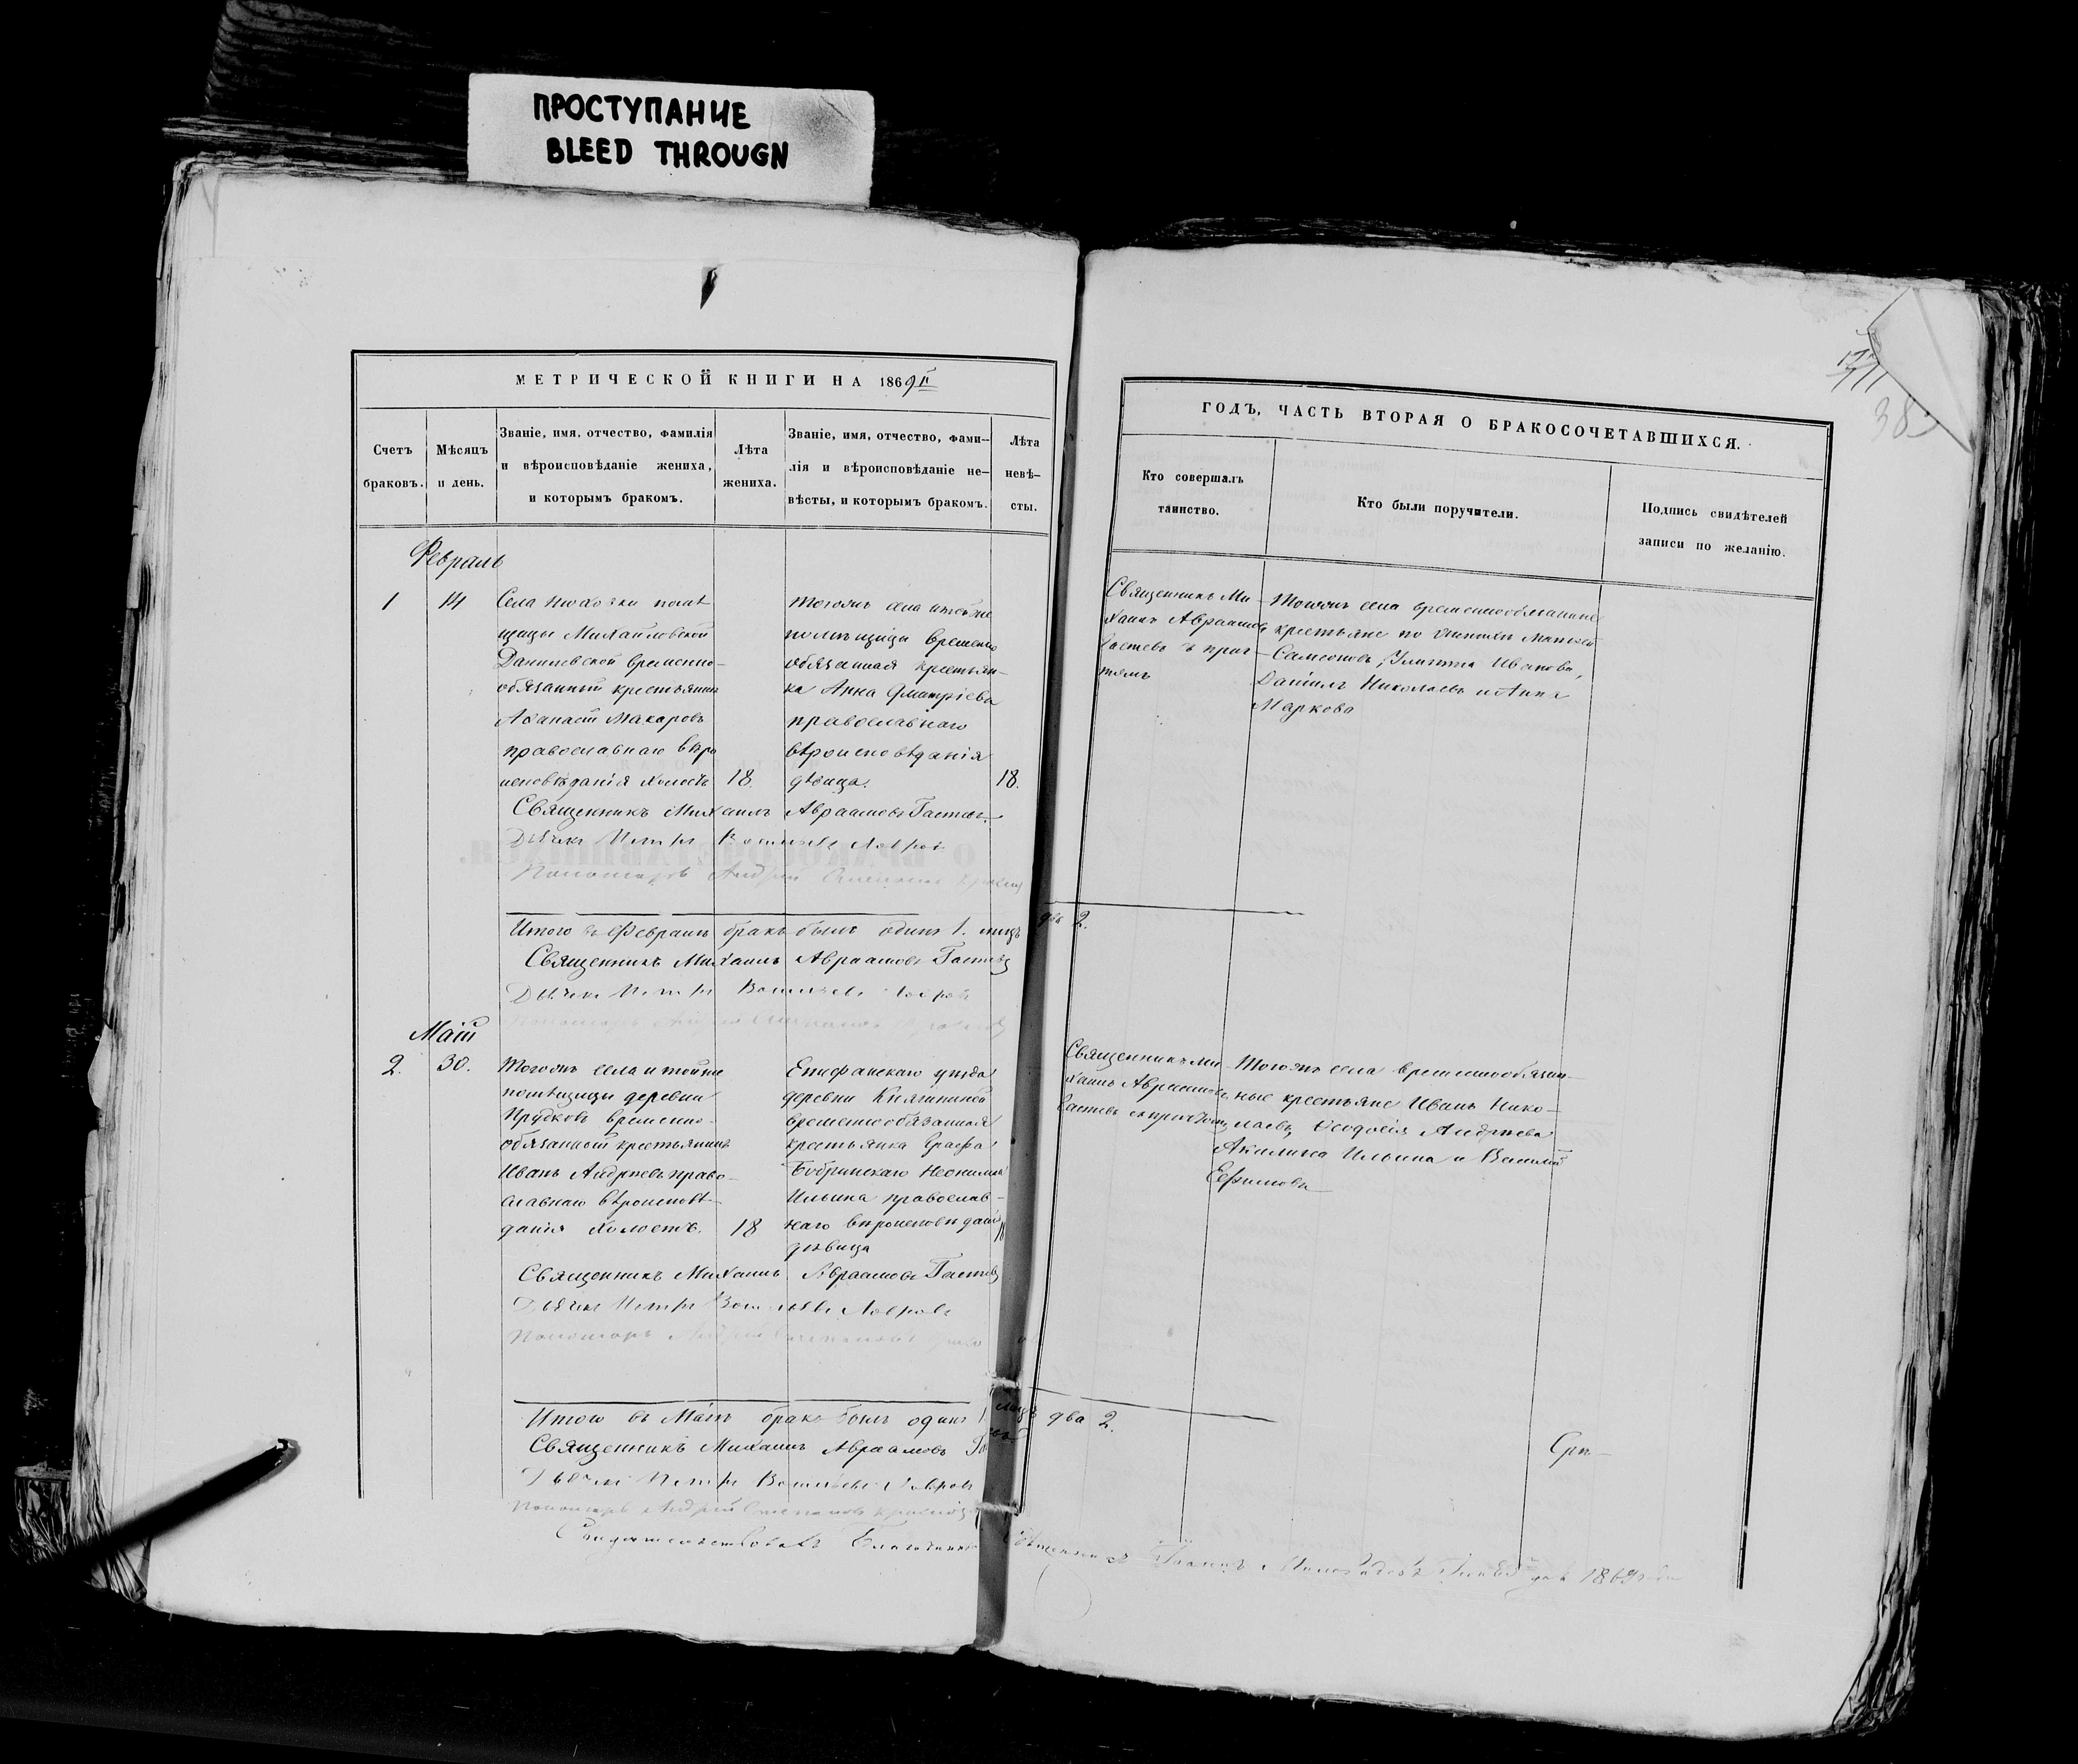 ПРОСТУПАНИЕ
BLEED THROUGH
МЕТРИЧЕСКОЙ КНИГИ НА 1869
Счетъ браковъ.
Мѣсяцъ и день.
Званіе, имя, отчество, фамилія
и вѣроисповѣданіе жениха,
и которымъ бракомъ.
Лѣта
жениха.
Званіе, имя, отчество, фами-
лія и вѣроисповѣданіе не-
вѣсты, и которымъ бракомъ.
Лѣта
невѣ-
сты.
Февраль
1
14
Села помѣ
щицы Михайловской
Даниловской временно-
обязанный крестьянинъ
Афанасій Макаровъ
православнаго вѣро
исповѣданія холостъ
18.
Тогожъ села тойже
помѣщицы временно
обязанная крестьян-
ка Анна Дмитріева
православнаго
вѣроисповѣданія
дѣвица.
18.
Священникъ Михаилъ Авраамовъ Гастевъ
Дьячекъ Петръ Васильевъ Лавровъ
Пономарь Андрей
Итого въ Февралѣ бракъ былъ одинъ 1. лицъ два 2.
Священникъ Михаилъ Авраамовъ Гастевъ
Дьячекъ Петръ Васильевъ Лавровъ
Май
2.
30.
Тогожъ села и тойже
помѣщицы деревни
Прудковъ временно-
обязанный крестьянинъ
Иванъ Андреевъ право-
славнаго вѣроисповѣ-
данія холостъ.
18
Епифанскаго уѣзда
деревни Княгининой
временнообязанная
крестьянка Графа
Бобринскаго Неонила
Ильина православ-
наго вѣроисповѣданія
дѣвица
Священникъ Михаилъ Авраамовъ Гастевъ
Дьячекъ Петръ Васильевъ Лавровъ
Пономарь Андрей
Итого въ Маѣ бракъ былъ одинъ 1. лицъ два 2.
Священникъ Михаилъ Авраамовъ
Дьячекъ Петръ Васильевъ Лавровъ
Пономарь Андрей Степановъ
Свидѣтельствовалъ Благочинный Священникъ 1869 года
ГОДЪ, ЧАСТЬ ВТОРАЯ О БРАКОСОЧЕТАВШИХСЯ.
Кто совершалъ
таинство.
Кто были поручители.
Подпись свидѣтелей
записи по желанію.
Священникъ Ми-
хаилъ Авраамовъ
Гастевъ съ прич-
томъ
Тогожъ села временнообязанные
крестьяне по
Самсоновъ, Улитта Иванова,
Даніилъ Николаевъ и Анна
Маркова
Священникъ Ми
хаилъ Авраамовъ
Гастевъ съ причтомъ
Тогожъ села временнообязан-
ные крестьяне Иванъ Нико-
лаевъ, Феодосія Андреева
Акилина Ильина и Василій
Ефимовъ